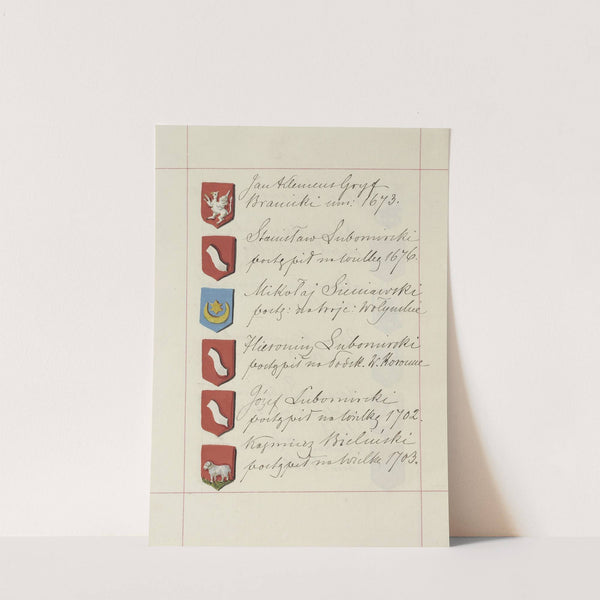 Jan Klemens Gryf
Branicki um: 1673.
Stanisław Lubomirski
postąpił na wielkę 1676.
Mikołaj Sieniawski
postą: na woje: Wołyńskie
Hieronim Lubomirski
postąpił na Podsk. W. Koronne
Józef Lubomirski
postąpił na wielką 1702.
Kazimierz Bieliński
postąpił na wielka 1703.